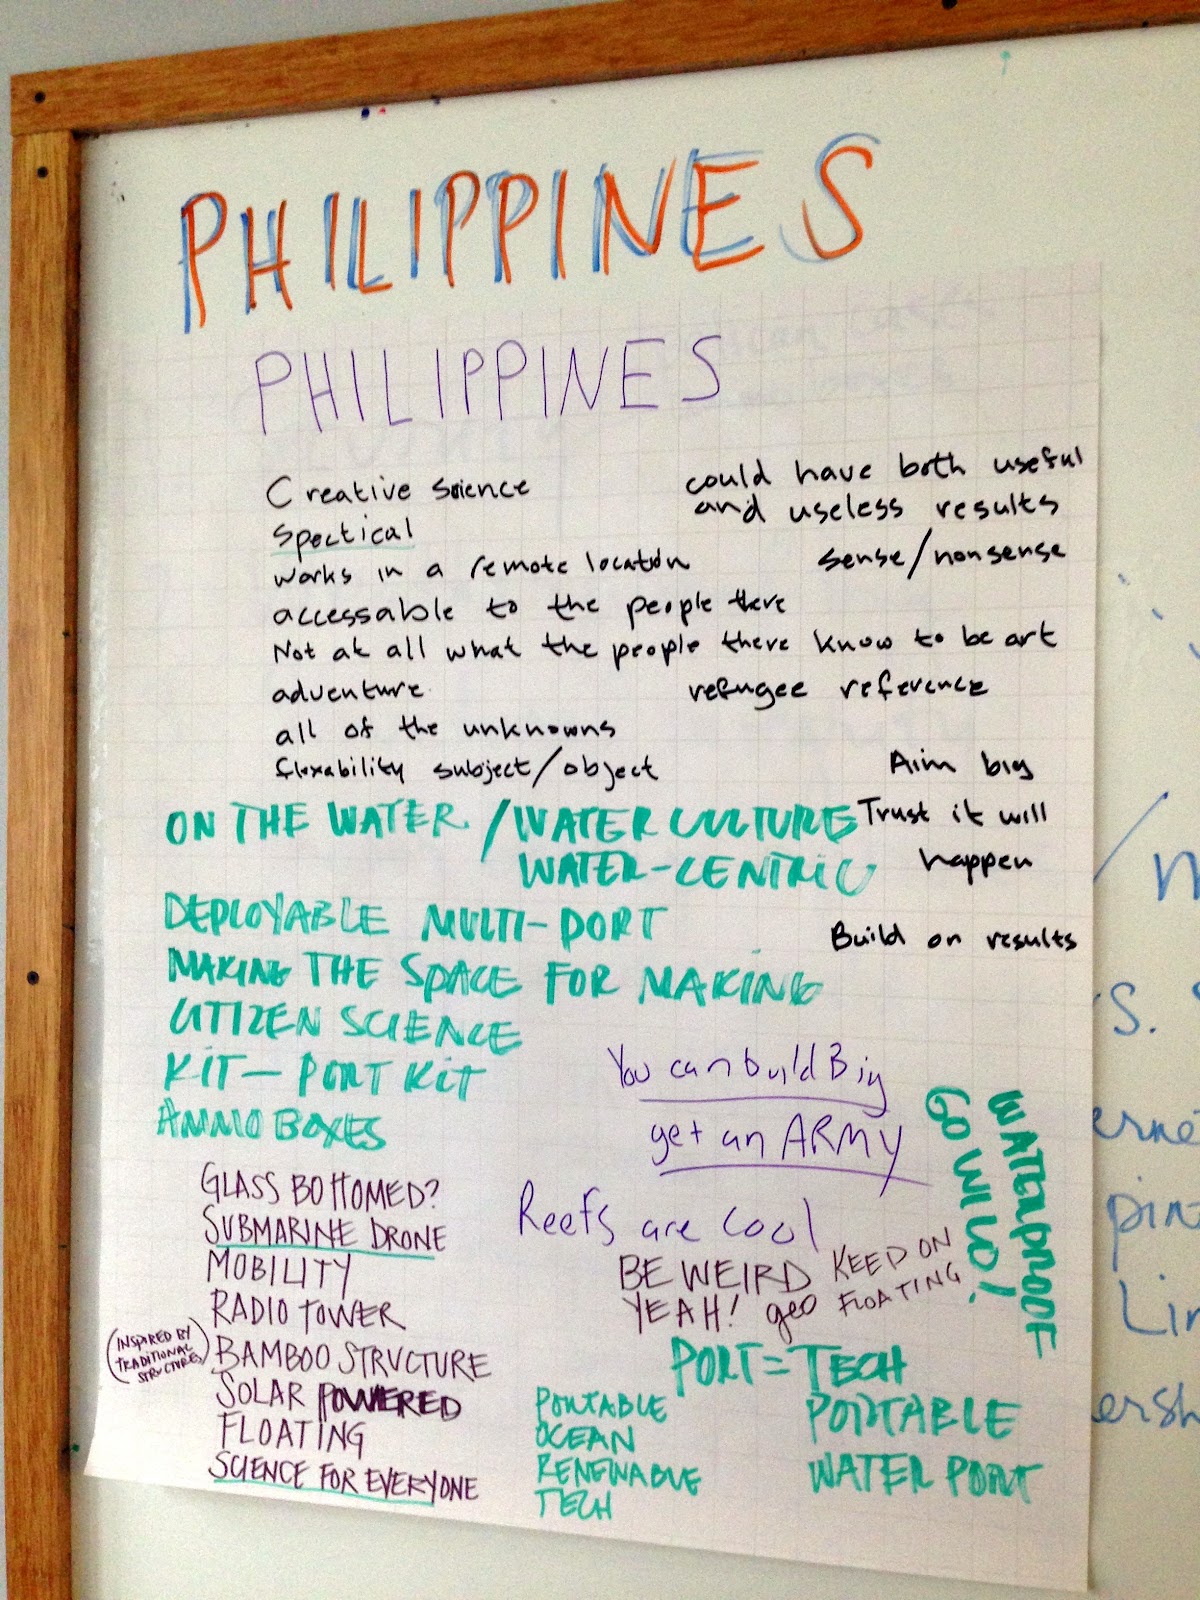 PHILIPPINES
PHILIPPINES
Creative science
could have both useful
and useless results
Spectical
sense/nonsense
works in a remote location
accessable to the people there
Not at all what the people there know to be art
adventure
refugee reference
all of the unknowns
flexability subject/object
Aim big
Trust it will
happen
Build on results
ON THE WATER / WATER CULTURE
WATER-CENTRIC
DEPLOYABLE MULTI-PORT
MAKING THE SPACE FOR MAKING
CITIZEN SCIENCE
KIT – PORT KIT
AMMO BOXES
You can build Big
get an ARMY
WATERPROOF
GO WILD!
Reefs are cool
BE WEIRD
YEAH! geo
KEEP ON
FLOATING
GLASS BOTTOMED?
SUBMARINE DRONE
MOBILITY
RADIO TOWER
(INSPIRED BY
TRADITIONAL
STRUCTURES)
BAMBOO STRUCTURE
SOLAR POWERED
FLOATING
SCIENCE FOR EVERYONE
PORT = TECH
PORTABLE
OCEAN
RENEWABLE
TECH
PORTABLE
WATER PORT
S.
Lin